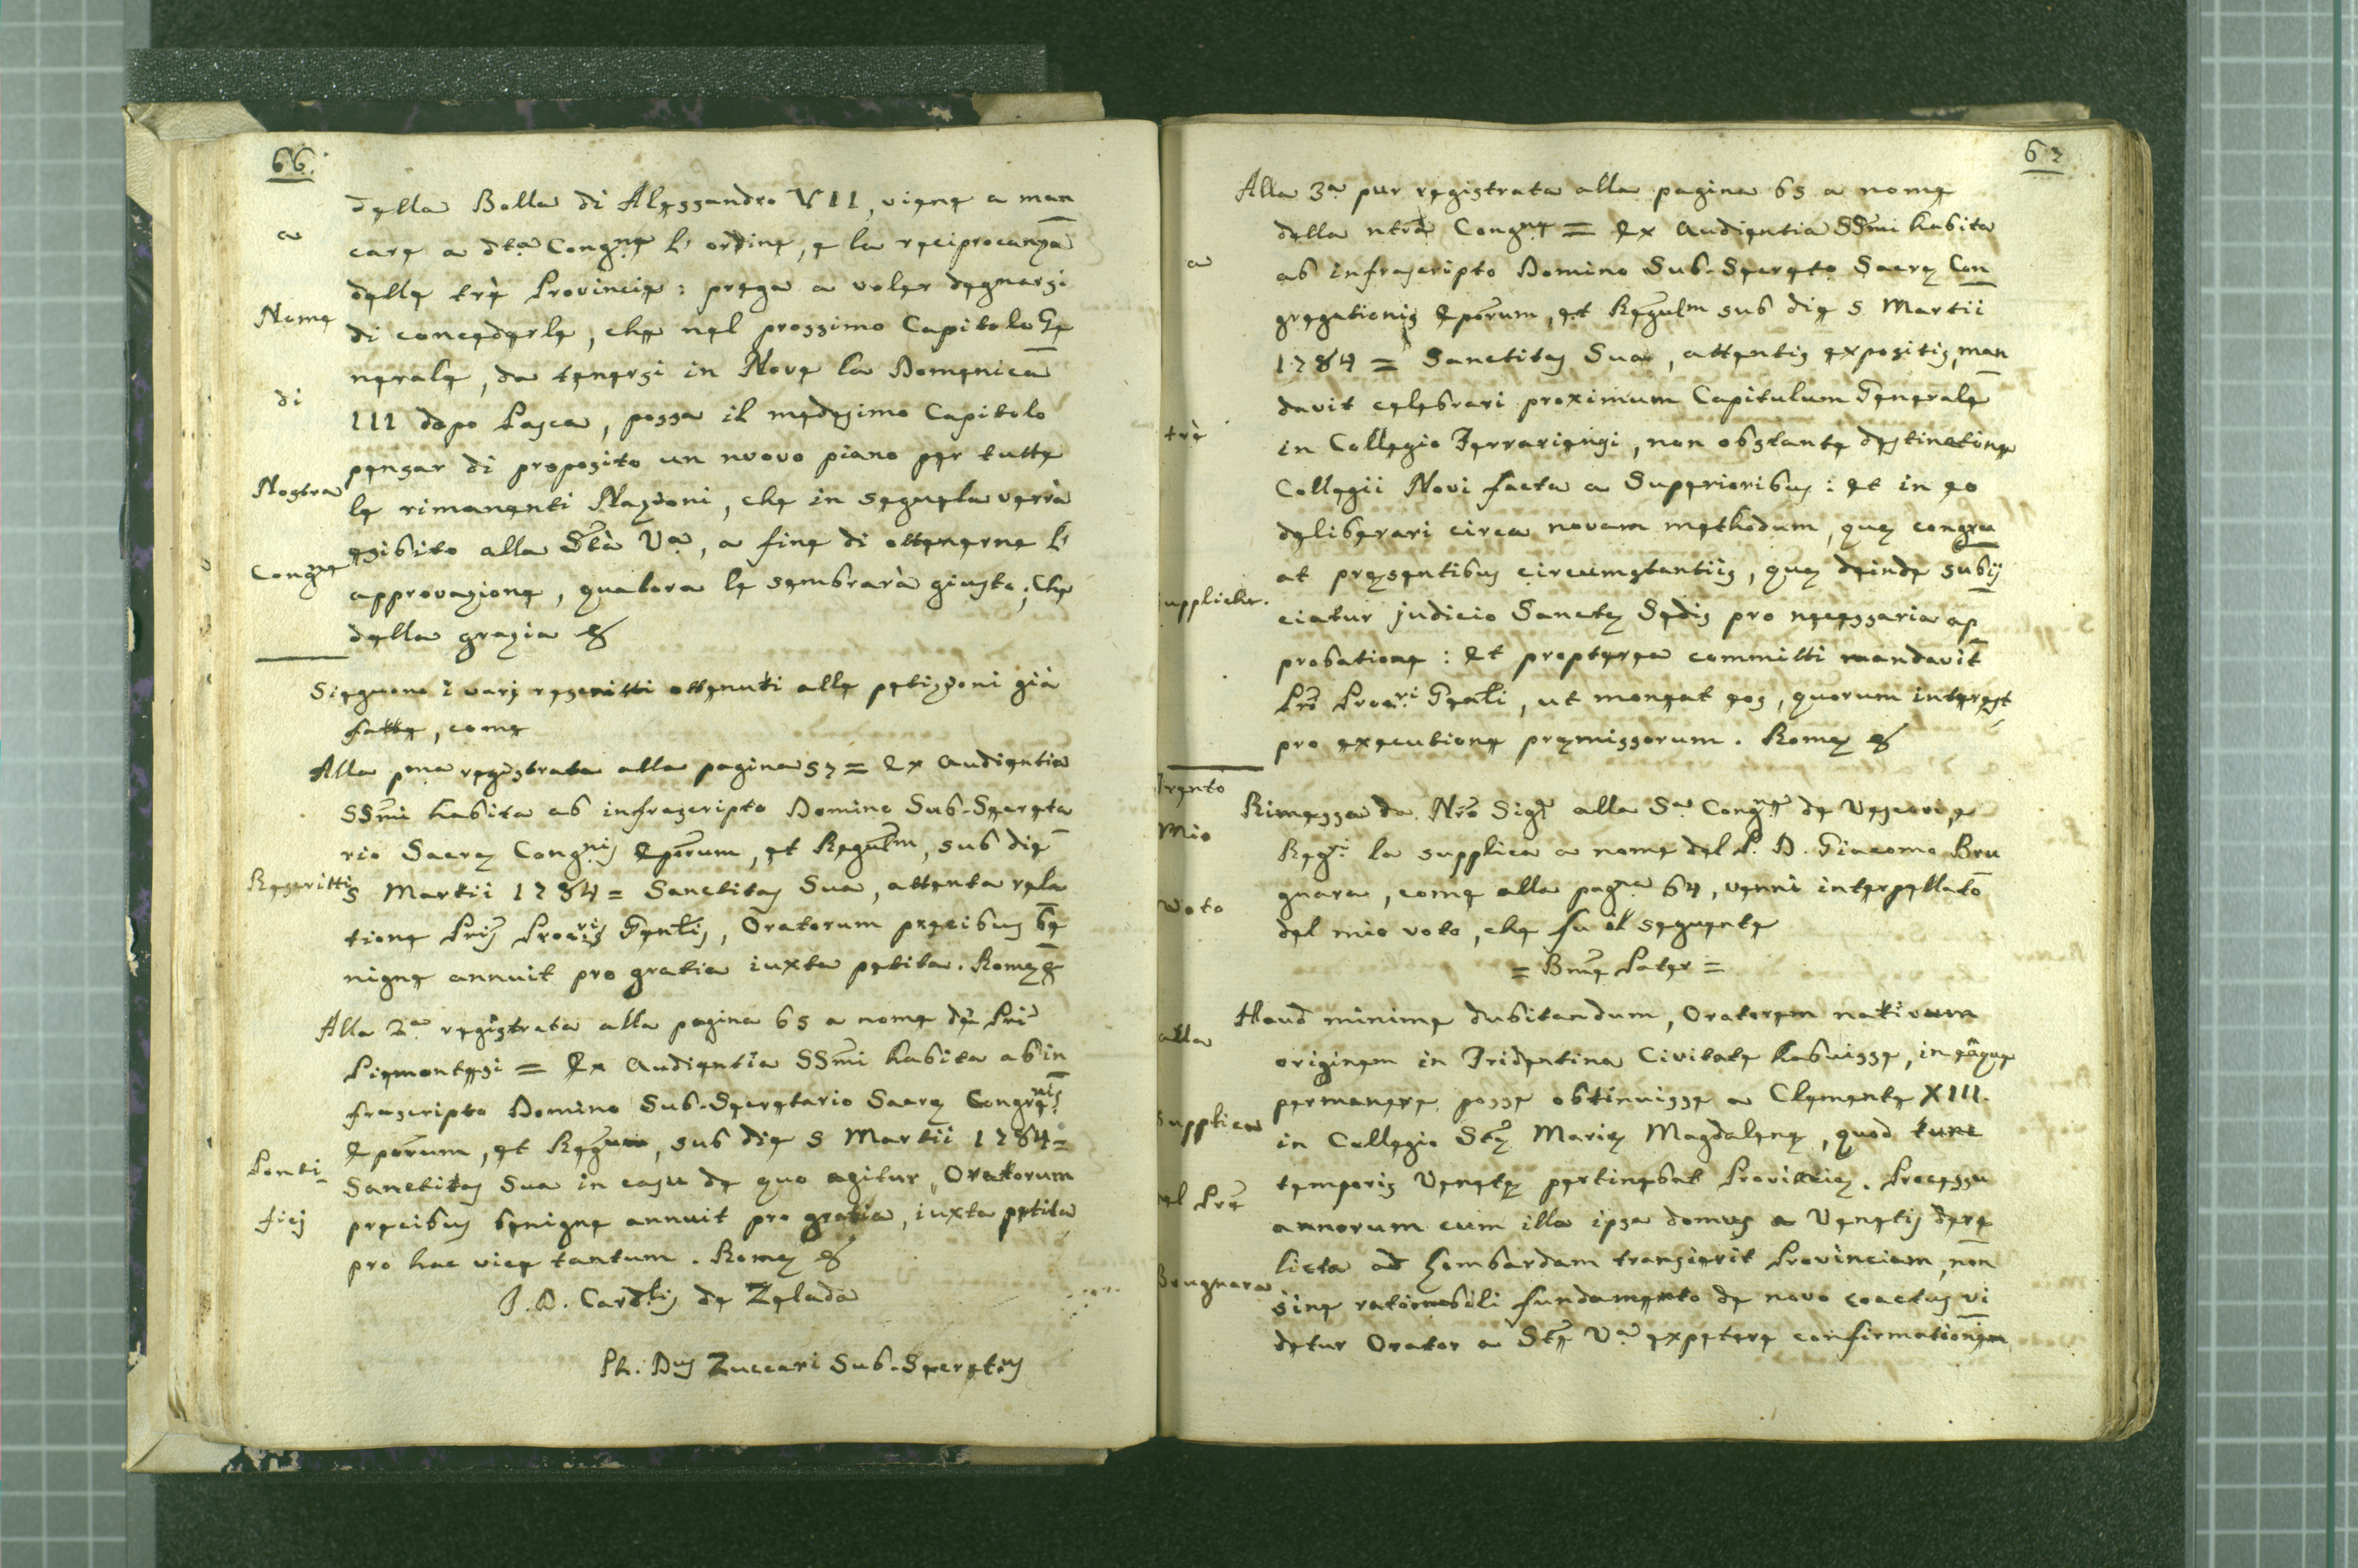 66.
della Bolla di Alessandro VII, viene a man
care a dta Congne l' ordine, e la reciprocanza
delle trè Provincie: prega a voler degnarsi
di concederle, che nel prossimo Capitolo Ge
nerale, da tenersi in Nove la Domenica
III dopo Pasca, possa il medesimo Capitolo
pensar di proposito un nuovo piano per tutte
le rimanenti Nazioni, che in seguela verrà
esibito alla Stà Va, a fine di ottenerne l'
approvazione, qualora le sembrarà giusto; Che
della grazia &
a
Nome
di
Nostra
Congne
Sieguono i varj rescritti ottenuti alle petizioni già
fatte, come
Alla pma registrata alla pagina 57 = Ex Audientia
SSmi habita ab infrascripto Domino Sub-Secreta
rio Sacrę Congnis Eporum, et Regulm, sub die
5 Martii 1784 = Sanctitas Sua, attenta rela
tione Pris Procris Genlis, Oratorum precibus be
nigne annuit pro gratia iuxta petita. Romę &
Alla 2a registrata alla pagina 65 a nome de Pri
Piemontesi = Ex Audientia SSmi habita ab in
frascripto Domino Sub-Secretario Sacrę Congrenis
Eporum, et Regum, sub die 5 Martii 1784 =
Sanctitas Sua in casu de quo agitur, Oratorum
precibus benigne annuit pro gratia, iuxta petita
pro hac vice tantum. Romę &
F. D. Cardlis de Zelada
Ph. Dus Zuccari Sub-Secretus
Rescritti
Ponti-
ficj
67
Alla 3a pur registrata alla pagina 65 a nome
della ntra Congne = Ex Audientia SSmi habita
ab infrascripto Domino Sub-Secreto Sacrę Con
gregationis Eporum, et Regulm sub die 5 Martii
1784 = Sanctitas Sua, attentis expositis, man
davit celebrari proximum Capitulum Generale
in Collegio Ferrariensi, non obstante destinatione
Collegii Novi facta a Superioribus: Et in eo
deliberari circa novam methodum, quę congru
at pręsentibus circumstantiis, quę deinde subij
ciatur judicio Sanctę Sedis pro necessaria ap
probatione: Et propterea committi mandavit
Pri Procri Genli, ut moneat eos, quorum interest
pro executione pręmissorum. Romę &
a
trè
suppliche.
Rimessa da Nro Sigre alla Sa Congne de Vescovi, e
Regri la supplica a nome del P. D. Giacomo Bru
gnara, come alla pagna 64, venni interpellato
del mio voto, che fu il seguente
= Bme Pater =
Haud minime dubitandum, Oratorem nativam
originem in Tridentina Civitate habuisse, in eaque
permanere posse obtinuisse a Clemente XIII.
in Collegio Stę Marię Magdalenę, quod tunc
temporis Venetę pertinebat Provincię. Processu
annorum cum illa ipsa domus a Venetis dere
licta ad Lombardam transierit Provinciam, non
sine rationabili fundamento de novo coactus vi
detur Orator a Ste Va expetere confirmationem
Trento
Mio
Voto
alla
Supplica
del Pre
Brugnara